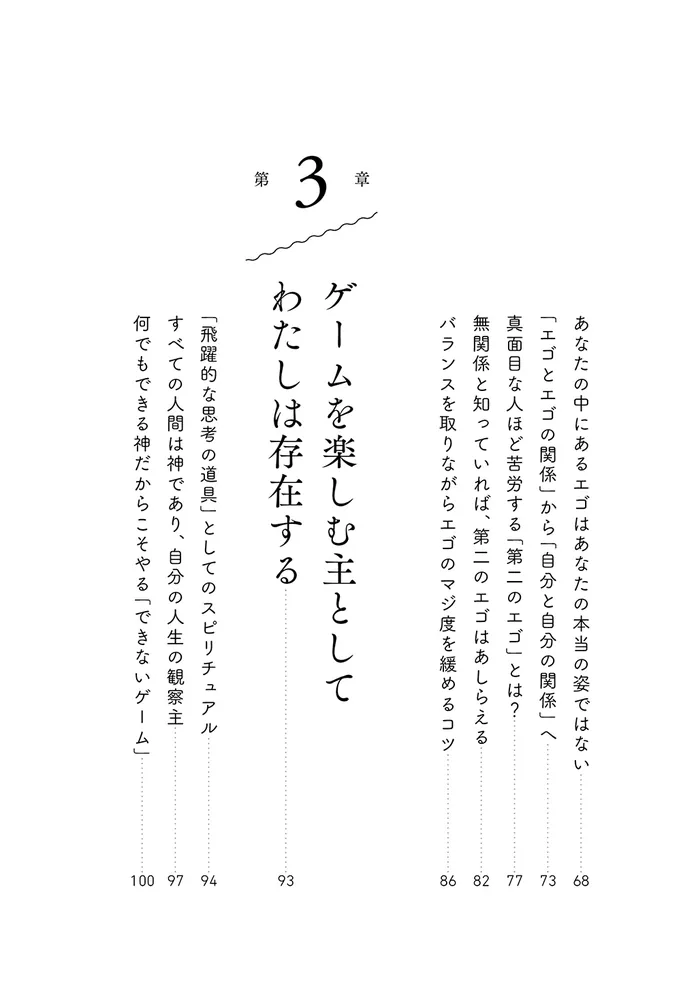 あなたの中にあるエゴはあなたの本当の姿ではない 68
「エゴとエゴの関係」から「自分と自分の関係」へ 73
真面目な人ほど苦労する「第二のエゴ」とは? 77
無関係と知っていれば、第二のエゴはあしらえる 82
バランスを取りながらエゴのマジ度を緩めるコツ 86
第3章
ゲームを楽しむ主として
わたしは存在する 93
「飛躍的な思考の道具」としてのスピリチュアル 94
すべての人間は神であり、自分の人生の観察主 97
何でもできる神だからこそやる「できないゲーム」 100